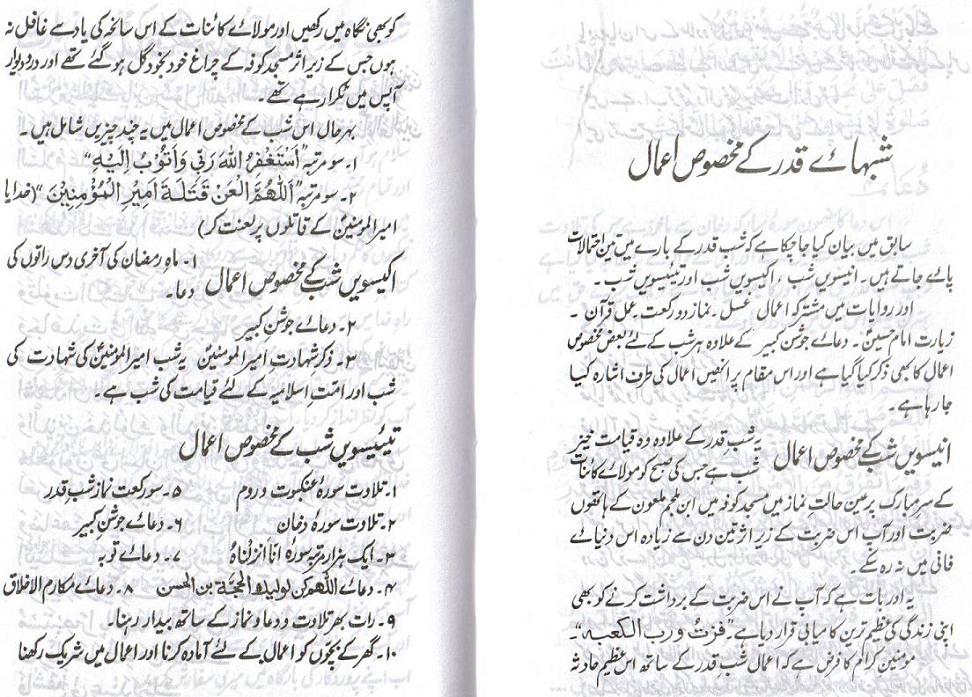 شبہائے قدر کے مخصوص اعمال
سابق میں بیان کیا جا چکا ہے کہ شب قدر کے بارے میں تین احتمالات
پائے جاتے ہیں۔ انیسویں شب، اکیسویں شب اور تیئیسویں شب۔
اور روایات میں مشترکہ اعمال غسل۔ نماز دو رکعت۔ عمل قرآن۔
زیارت امام حسینؑ۔ دعائے جوشن کبیر کے علاوہ ہر شب کے لئے بعض مخصوص
اعمال کا بھی ذکر کیا گیا ہے اور اس مقام پر انھیں اعمال کی طرف اشارہ کیا
جا رہا ہے۔
انیسویں شب کے مخصوص اعمال
یہ شب قدر کے علاوہ وہ قیامت خیز
شب ہے جس کی صبح کو مولائے کائنات
کے سر مبارک پر عین حالت نماز میں مسجد کوفہ میں ابن ملجم ملعون کے ہاتھوں
ضربت اور آپ اس ضربت کے زیر اثر تین دن سے زیادہ اس دنیائے
فانی میں نہ رہ سکے۔
یہ اور بات ہے کہ آپ نے اس ضربت کے برداشت کرنے کو بھی
اپنی زندگی کی عظیم ترین کامیابی قرار دیا ہے۔ "فزتُ و رب الکعبہ"۔
مومنین کرام کا فرض ہے کہ اعمال شب قدر کے ساتھ اس عظیم حادثہ
کو بھی نگاہ میں رکھیں اور مولائے کائنات کے اس سانحہ کی یاد سے غافل نہ
ہوں جس کے زیر اثر مسجد کوفہ کے چراغ خود بخود گل ہو گئے تھے اور در و دیوار
آپس میں ٹکرا رہے تھے۔
بہرحال اس شب کے مخصوص اعمال میں یہ چند چیزیں شامل ہیں۔
۱۔ سو مرتبہ "اَسْتَغْفِرُ اللهَ رَبِّیْ وَاَتُوْبُ اِلَیْهِ"
۲۔ سو مرتبہ "اَللّٰهُمَّ الْعَنْ قَتَلَةَ اَمِیْرِ الْمُؤْمِنِیْنَ" (خدایا
امیر المومنینؑ کے قاتلوں پر لعنت کر)
اکیسویں شب کے مخصوص اعمال
۱۔ ماہ رمضان کی آخری دس راتوں کی
دعا۔
۲۔ دعائے جوشن کبیر
۳۔ ذکر شہادت امیر المومنینؑ یہ شب امیر المومنینؑ کی شہادت کی
شب اور امت اسلامیہ کے لئے قیامت کی شب ہے۔
تیئیسویں شب کے مخصوص اعمال
۱۔ تلاوت سورۂ عنکبوت و روم
۵۔ سو رکعت نماز شب قدر
۲۔ تلاوت سورۂ دخان
۶۔ دعائے جوشن کبیر
۳۔ ایک ہزار مرتبہ سورہ انا انزلناہُ
۷۔ دعائے توبہ
۴۔ دعائے اللّٰهم کن لولیک الحجة بن الحسن
۸۔ دعائے مکارم الاخلاق
۹۔ رات بھر تلاوت و دعا و نماز کے ساتھ بیدار رہنا۔
۱۰۔ گھر کے بچوں کو اعمال کے لئے آمادہ کرنا اور اعمال میں شریک رکھنا